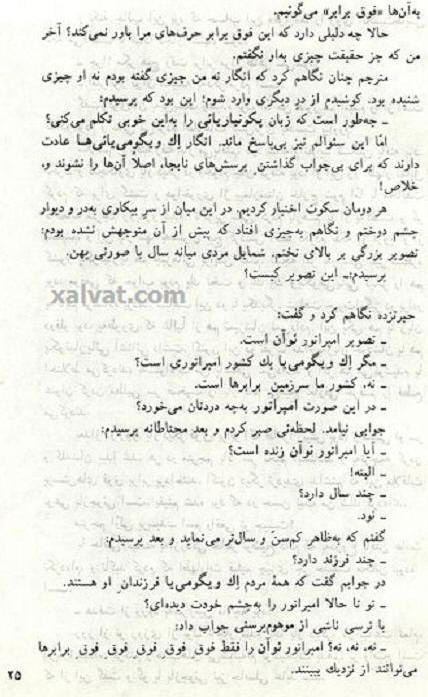 به‌آن‌ها «فوق برابر» می‌گوئیم.
حالا چه دلیلی دارد که این فوق برابر حرف‌های مرا باور نمی‌کند؟ آخر
من که جز حقیقت چیزی به‌او نگفتم.
مترجم چنان نگاهم کرد که انگار نه من چیزی گفته بودم نه او چیزی
شنیده بود. کوشیدم از درِ دیگری وارد شوم؛ این بود که پرسیدم:
ـ چه‌طور است که زبان یکونیاریائی را به‌این خوبی تکلم می‌کنی؟
امّا این سئوالم نیز بی‌پاسخ ماند. انگار اِك ویگومی‌یائی‌ها عادت
دارند که برای بی‌جواب گذاشتن پرسش‌های نابجا، اصلاً آن‌ها را نشنوند و،
خلاص!
هر دومان سکوت اختیار کردیم. در این میان از سر بیکاری به‌در و دیوار
چشم دوختم و نگاهم به‌چیزی افتاد که پیش از آن متوجهش نشده بودم:
تصویر بزرگی بر بالای تختم. شمایل مردی میانه سال با صورتی پهن.
پرسیدم:ـ این تصویر کیست؟
xalvat.com
حیرتزده نگاهم کرد و گفت:
ـ تصویر امپراتور نوآن است.
ـ مگر اِك ویگومی‌یا یك کشور امپراتوری است؟
ـ نه، کشور ما سرزمین برابرها است.
ـ در این صورت امپراتور به‌چه دردتان می‌خورد؟
جوابی نیامد. لحظه‌ئی صبر کردم و بعد محتاطانه پرسیدم:
ـ آیا امپراتور نوآن زنده است؟
ـ البته!
ـ چند سال دارد؟
ـ نود.
گفتم که به‌ظاهر کم‌سنّ و سال‌تر می‌نماید و بعد پرسیدم:
ـ چند فرزند دارد؟
در جوابم گفت که همهٔ مردم اِك ویگومی‌یا فرزندان او هستند.
ـ تو تا حالا امپراتور را به‌چشم خودت دیده‌ای؟
با ترسی ناشی از موهوم‌پرستی جواب داد:
ـ نه، نه، نه؟ امپراتور نوآن را فقط فوق فوق فوق فوق فوق برابرها
می‌توانند از نزدیك ببینند.
۲۵